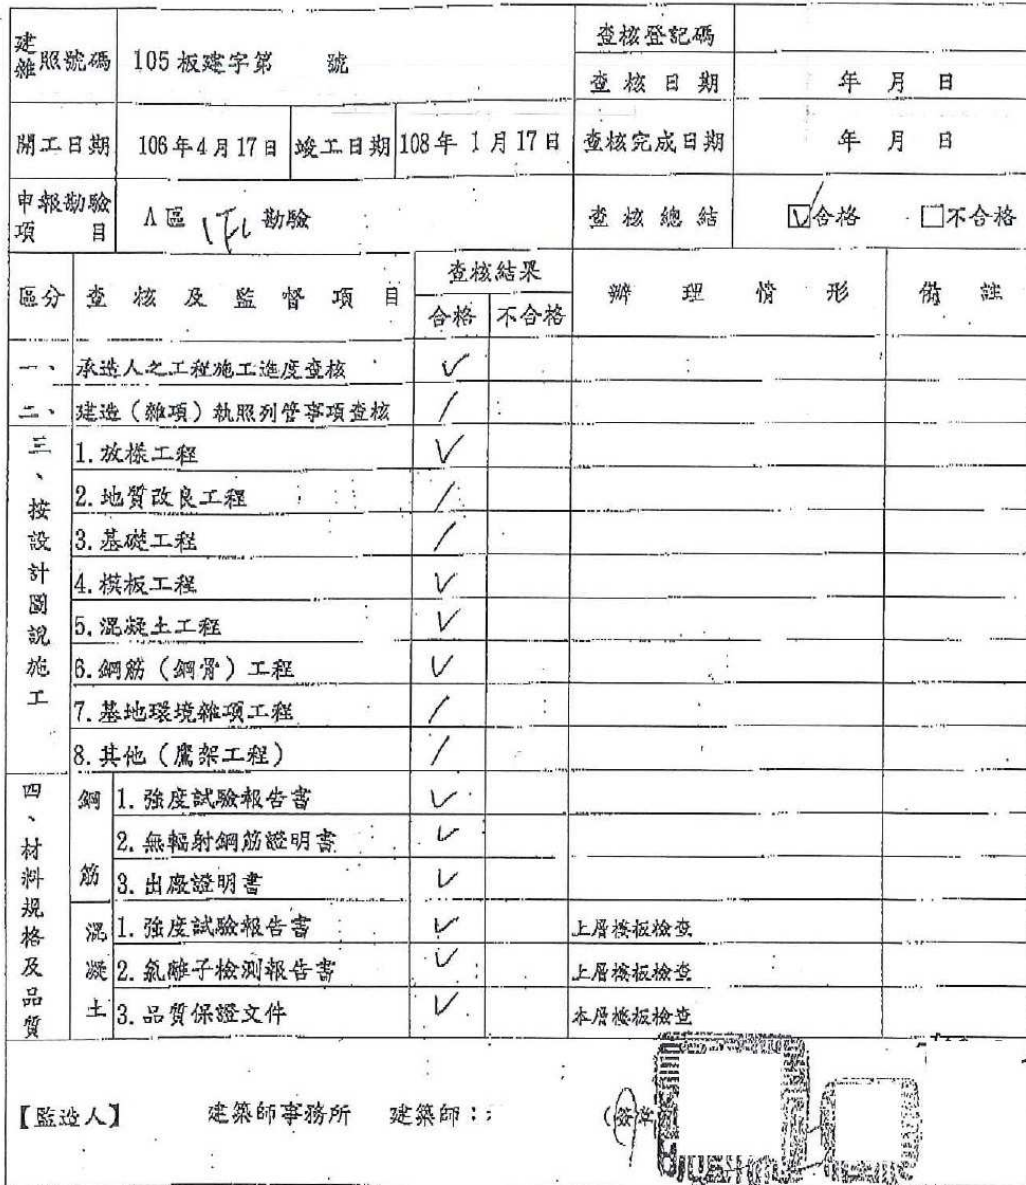 建雜照號碼 105板建字第 號 查核登記碼
查核日期 年 月 日
開工日期 106年4月17日 竣工日期 108年 1月17日 查核完成日期 年 月 日
申報勘驗項目 A區 1FL 勘驗 查核總結 ☑合格 □不合格
區分 查核及監督項目 查核結果 辦理情形 備註
合格 不合格
一、 承造人之工程施工進度查核 ✓
二、 建造(雜項)執照列管事項查核 /
三、按設計圖說施工
1.放樣工程 ✓
2.地質改良工程 /
3.基礎工程 /
4.模板工程 ✓
5.混凝土工程 ✓
6.鋼筋(鋼骨)工程 ✓
7.基地環境雜項工程 /
8.其他(鷹架工程) /
四、材料規格及品質
鋼筋
1.強度試驗報告書 ✓
2.無輻射鋼筋證明書 ✓
3.出廠證明書 ✓
混凝土
1.強度試驗報告書 ✓ 上層樓板檢查
2.氯離子檢測報告書 ✓ 上層樓板檢查
3.品質保證文件 ✓ 本層樓板檢查
【監造人】 建築師事務所 建築師: (簽章